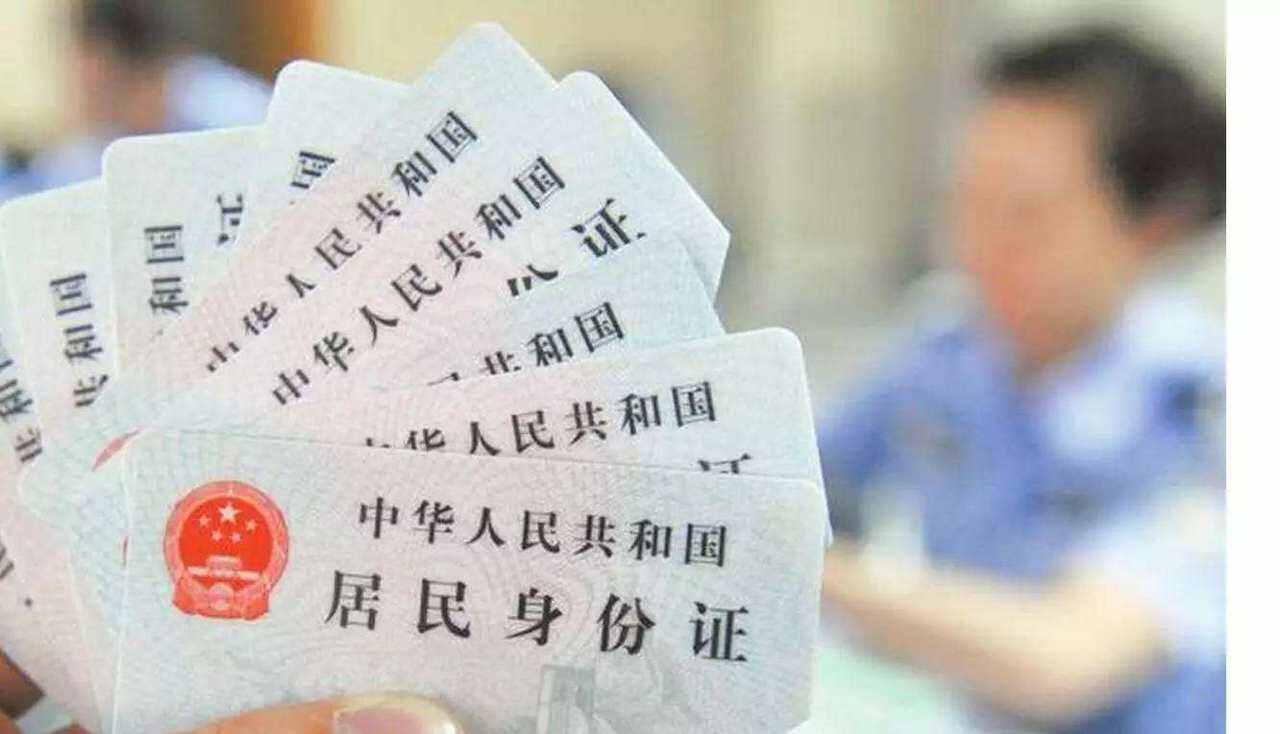 和国
和国
国
证
中华人民共和国
中华人民共和国
证
民共和国
中华人民共和国
证
中华人民共和国
居民身份证